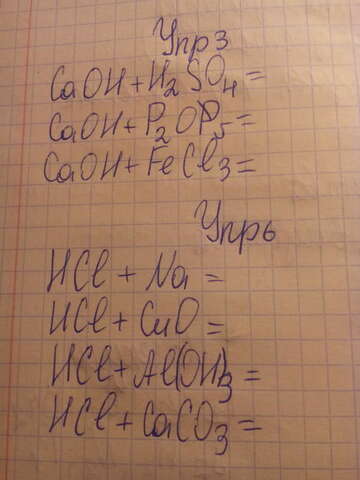 Упр3
CaOH + H₂SO₄ =
CaOH + P₂O₅ =
CaOH + FeCl₃ =
Упр6
HCl + Na =
HCl + CuO =
HCl + Al(OH)₃ =
HCl + CaCO₃ =